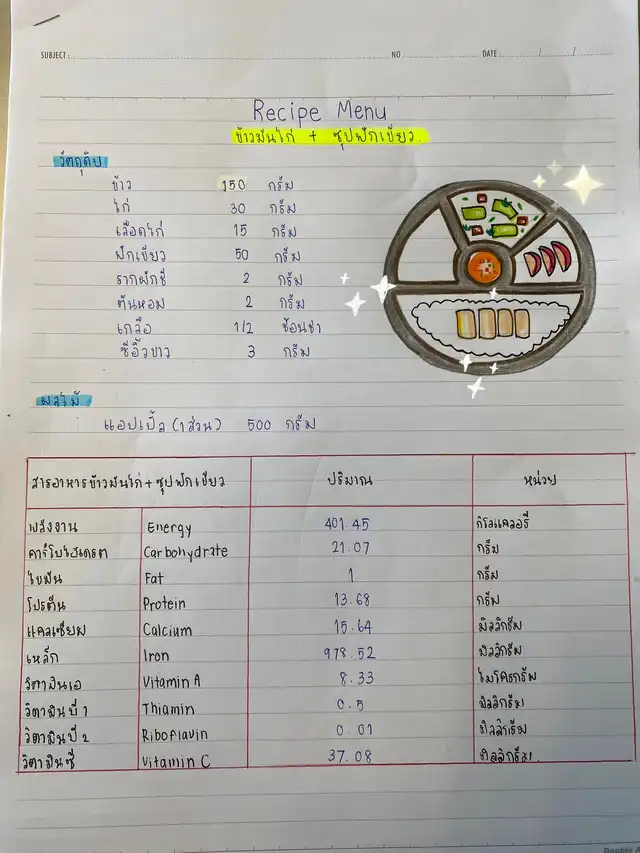 SUBJECT : NO DATE : / /
Recipe Menu
ข้าวมันไก่ + ซุปฟักเขียว
วัตถุดิบ
ข้าว 150 กรัม
ไก่ 30 กรัม
เลือดไก่ 15 กรัม
ฟักเขียว 50 กรัม
รากผักชี 2 กรัม
ต้นหอม 2 กรัม
เกลือ 1/2 ช้อนชา
ซีอิ๊วขาว 3 กรัม
ผลไม้
แอปเปิ้ล (1 ส่วน) 500 กรัม
สารอาหารข้าวมันไก่ + ซุปฟักเขียว ปริมาณ หน่วย
พลังงาน Energy 401.45 กิโลแคลอรี่
คาร์โบไฮเดรต Carbohydrate 21.07 กรัม
ไขมัน Fat 1 กรัม
โปรตีน Protein 13.68 กรัม
แคลเซียม Calcium 15.64 มิลลิกรัม
เหล็ก Iron 978.52 มิลลิกรัม
วิตามินเอ Vitamin A 8.33 ไมโครกรัม
วิตามินบี 1 Thiamin 0.5 มิลลิกรัม
วิตามินบี 2 Riboflavin 0.01 มิลลิกรัม
วิตามินซี Vitamin C 37.08 มิลลิกรัม
Double A